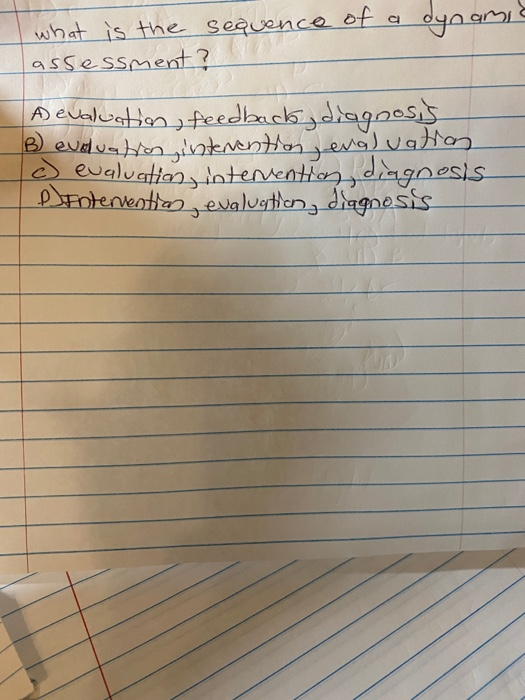 what is the sequence of a dynamic
assessment?
A) evaluation, feedback, diagnosis
B) evaluation, intervention, evaluation
C) evaluation, intervention, diagnosis
D) Intervention, evaluation, diagnosis